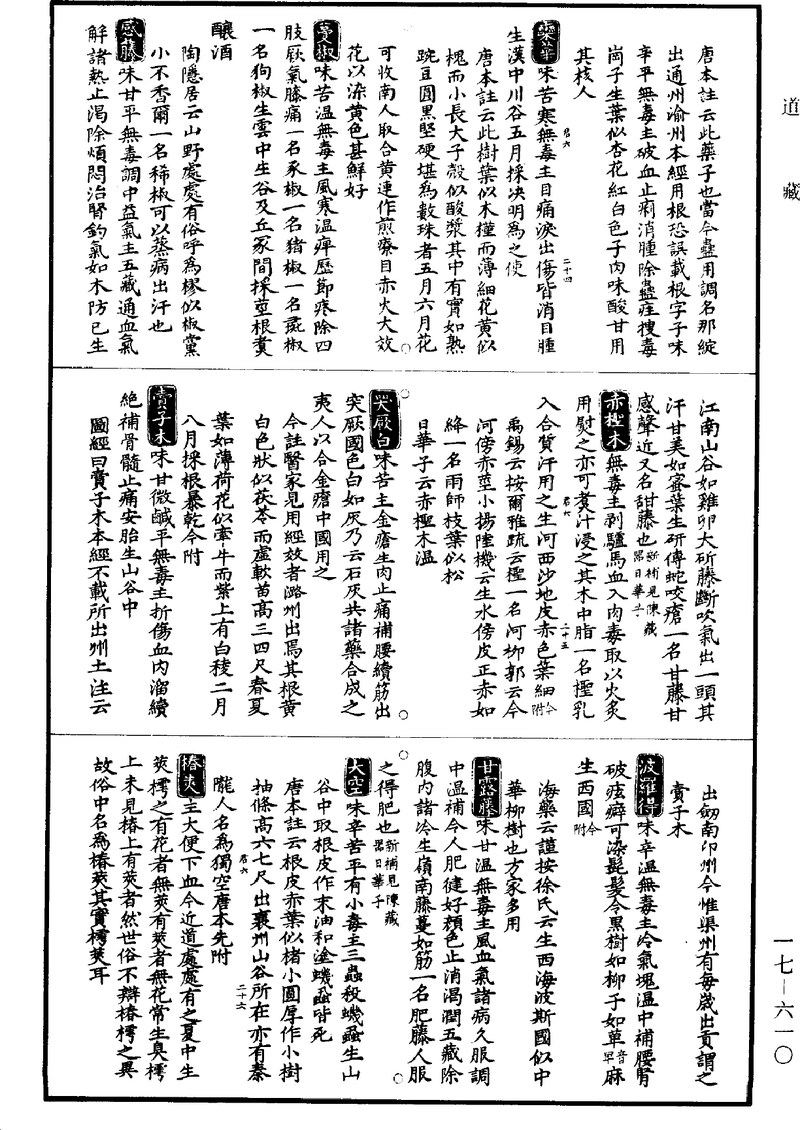 道藏
唐本註云此藥子也當今蠱用調名那綻
出通州渝州本經用根恐誤載根字子味
辛平無毒主破血止痢消腫除蠱疰搜毒
崗子生葉似杏花紅白色子肉味酸甘用
其核人
君六
二十四
欒華味苦寒無毒主目痛淚出傷眥消目腫
生漢中川谷五月採决明為之使
唐本註云此樹葉似木槿而薄細花黃似
槐而小長大子殼似酸漿其中有實如熟
豌豆圓黑堅硬堪為數珠者五月六月花
可收南人取合黃連作煎療目赤火大效
花以染黃色甚鮮好
蔓椒味苦溫無毒主風寒溫痺歷節疼除四
肢厥氣膝痛一名豕椒一名猪椒一名彘椒
一名狗椒生雲中生谷及丘冢間採莖根煮
釀酒
陶隱居云山野處處有俗呼為樛似椒黨
小不香爾一名豨椒可以蒸病出汗也
感藤味甘平無毒調中益氣主五藏通血氣
解諸熱止渴除煩悶治腎釣氣如木防已生
江南山谷如雞卯大斫藤斷吹氣出一頭其
汗甘美如蜜葉生研傅蛇咬瘡一名甘藤甘
感聲近又名甜藤也新補見陳藏器日華子
赤檉木無毒主剥驢馬血入肉毒取以火炙
用熨之亦可煮汁浸之其木中脂一名檉乳
君六
二十五
入合質汗用之生河西沙地皮赤色葉細今附
禹錫云按爾雅疏云檉一名河柳郭云今
河傍赤莖小揚陸機云生水傍皮正赤如
絳一名雨師枝葉似松
日華子云赤檉木溫
突厥白味苦主金瘡生肉止痛補腰續筋出
突厥國色白如灰乃云石灰共諸藥合成之
夷人以合金瘡中國用之
今註醫家見用經效者潞州出焉其根黃
白色狀似茯苓而虛軟苗高三四尺春夏
葉如薄荷花似牽牛而紫上有白稜二月
八月採根暴乾今附
賣子木味甘微鹹平無毒主折傷血內溜續
絕補骨髓止痛安胎生山谷中
圖經曰賣子木本經不載所出州土注云
出劒南卭州今惟渠州有每歲出貢謂之
賣子木
波羅得味辛溫無毒主冷氣塊溫中補腰腎
破痃癖可染髭髮令黑樹如柳子如萆音早麻
生西國今附
海藥云謹按徐氏云生西海波斯國似中
華柳樹也方家多用
甘露藤味甘溫無毒主風血氣諸病久服調
中溫補令人肥健好顏色止消渴潤五藏除
腹內諸冷生嶺南藤蔓如筯一名肥藤人服
之得肥也新補見陳藏器日華子
大空味辛苦平有小毒主三蟲殺蟣蝨生山
谷中取根皮作末油和塗蟣蝨皆死
唐本註云根皮赤葉似楮小圓厚作小樹
抽條高六七尺出襄州山谷所在亦有秦
君六
二十六
隴人名為獨空唐本先附
椿莢主大便下血今近道處處有之夏中生
莢樗之有花者無莢有莢者無花常生臭樗
上未見椿上有莢者然世俗不辯椿樗之異
故俗中名為椿莢其實樗莢耳
一七—六一〇